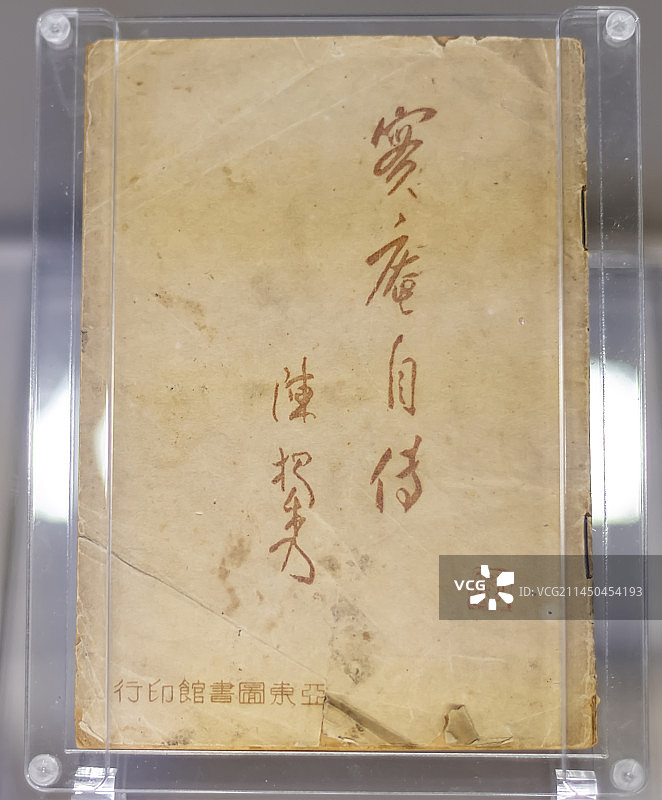 實庵自傳
陳獨秀
亞東圖書館印行
VCG
ID:VCG211450454193